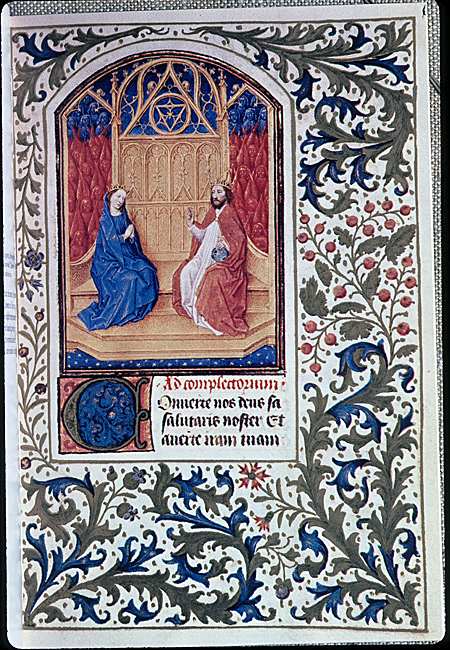 Ad complectorium
Conuerte nos deus sa
salutaris noster Et
auerte iram tuam